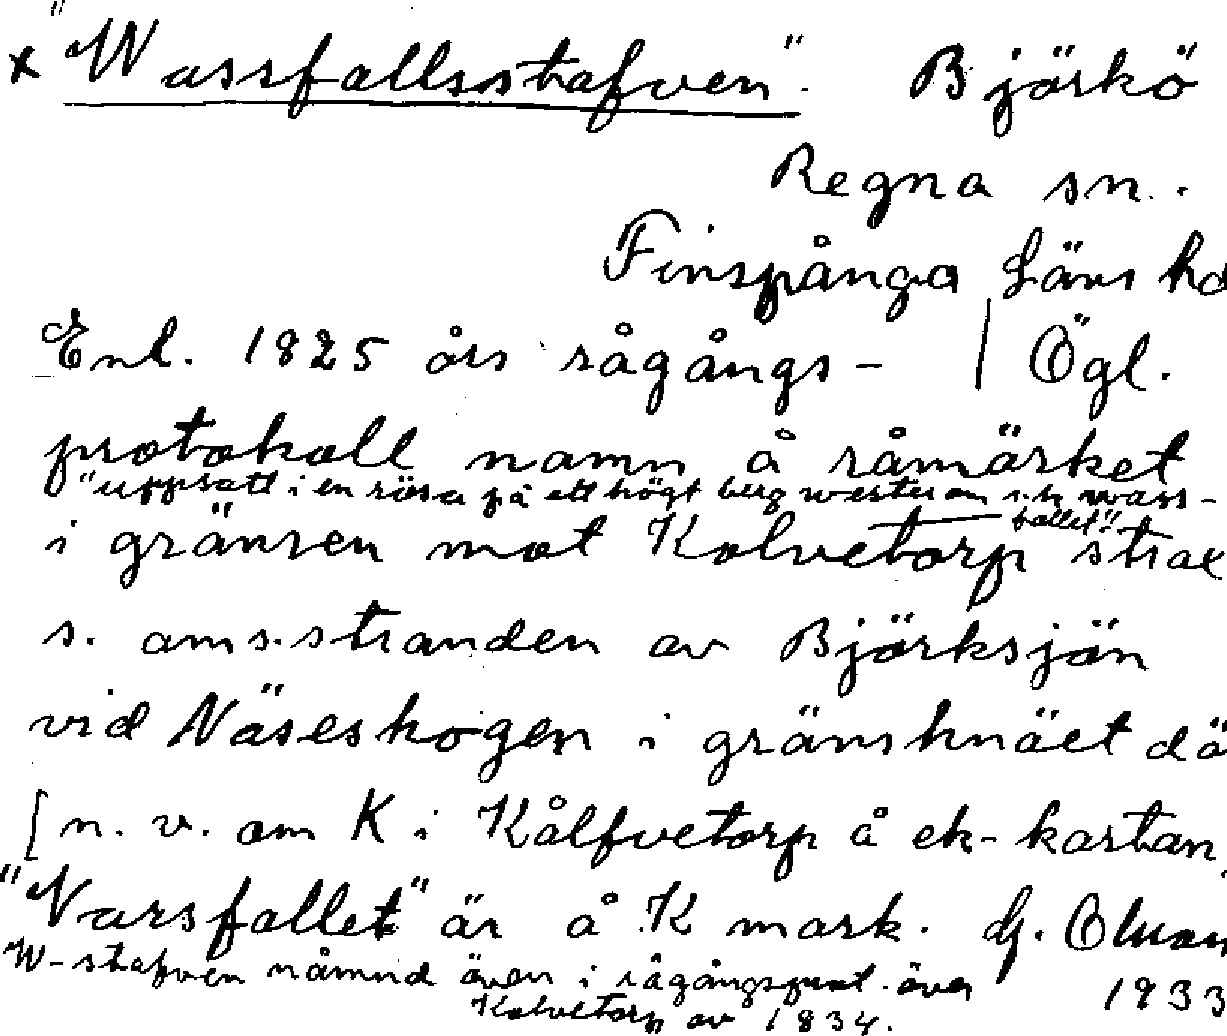 x "Wassfallsstafven". Björkö
Regna sn.
Finspånga läns hd
Enl. 1825 års rågångs- | Ögl.
protokoll namn å råmärket
"uppsatt i en rösa på ett högt berg wester om s.k. wass-
fallet"
i gränsen mot Kolvetorp strax
s. om s. stranden av Björksjön
vid Näseskogen i gränsknäet dä
[n. v. om K i Kålfvetorp å ek-kartan.
"Varsfallet" är å K mark. G.
W-stafven nämnd även i rågångsprot. över 1933
Kolvetorp av 1834.